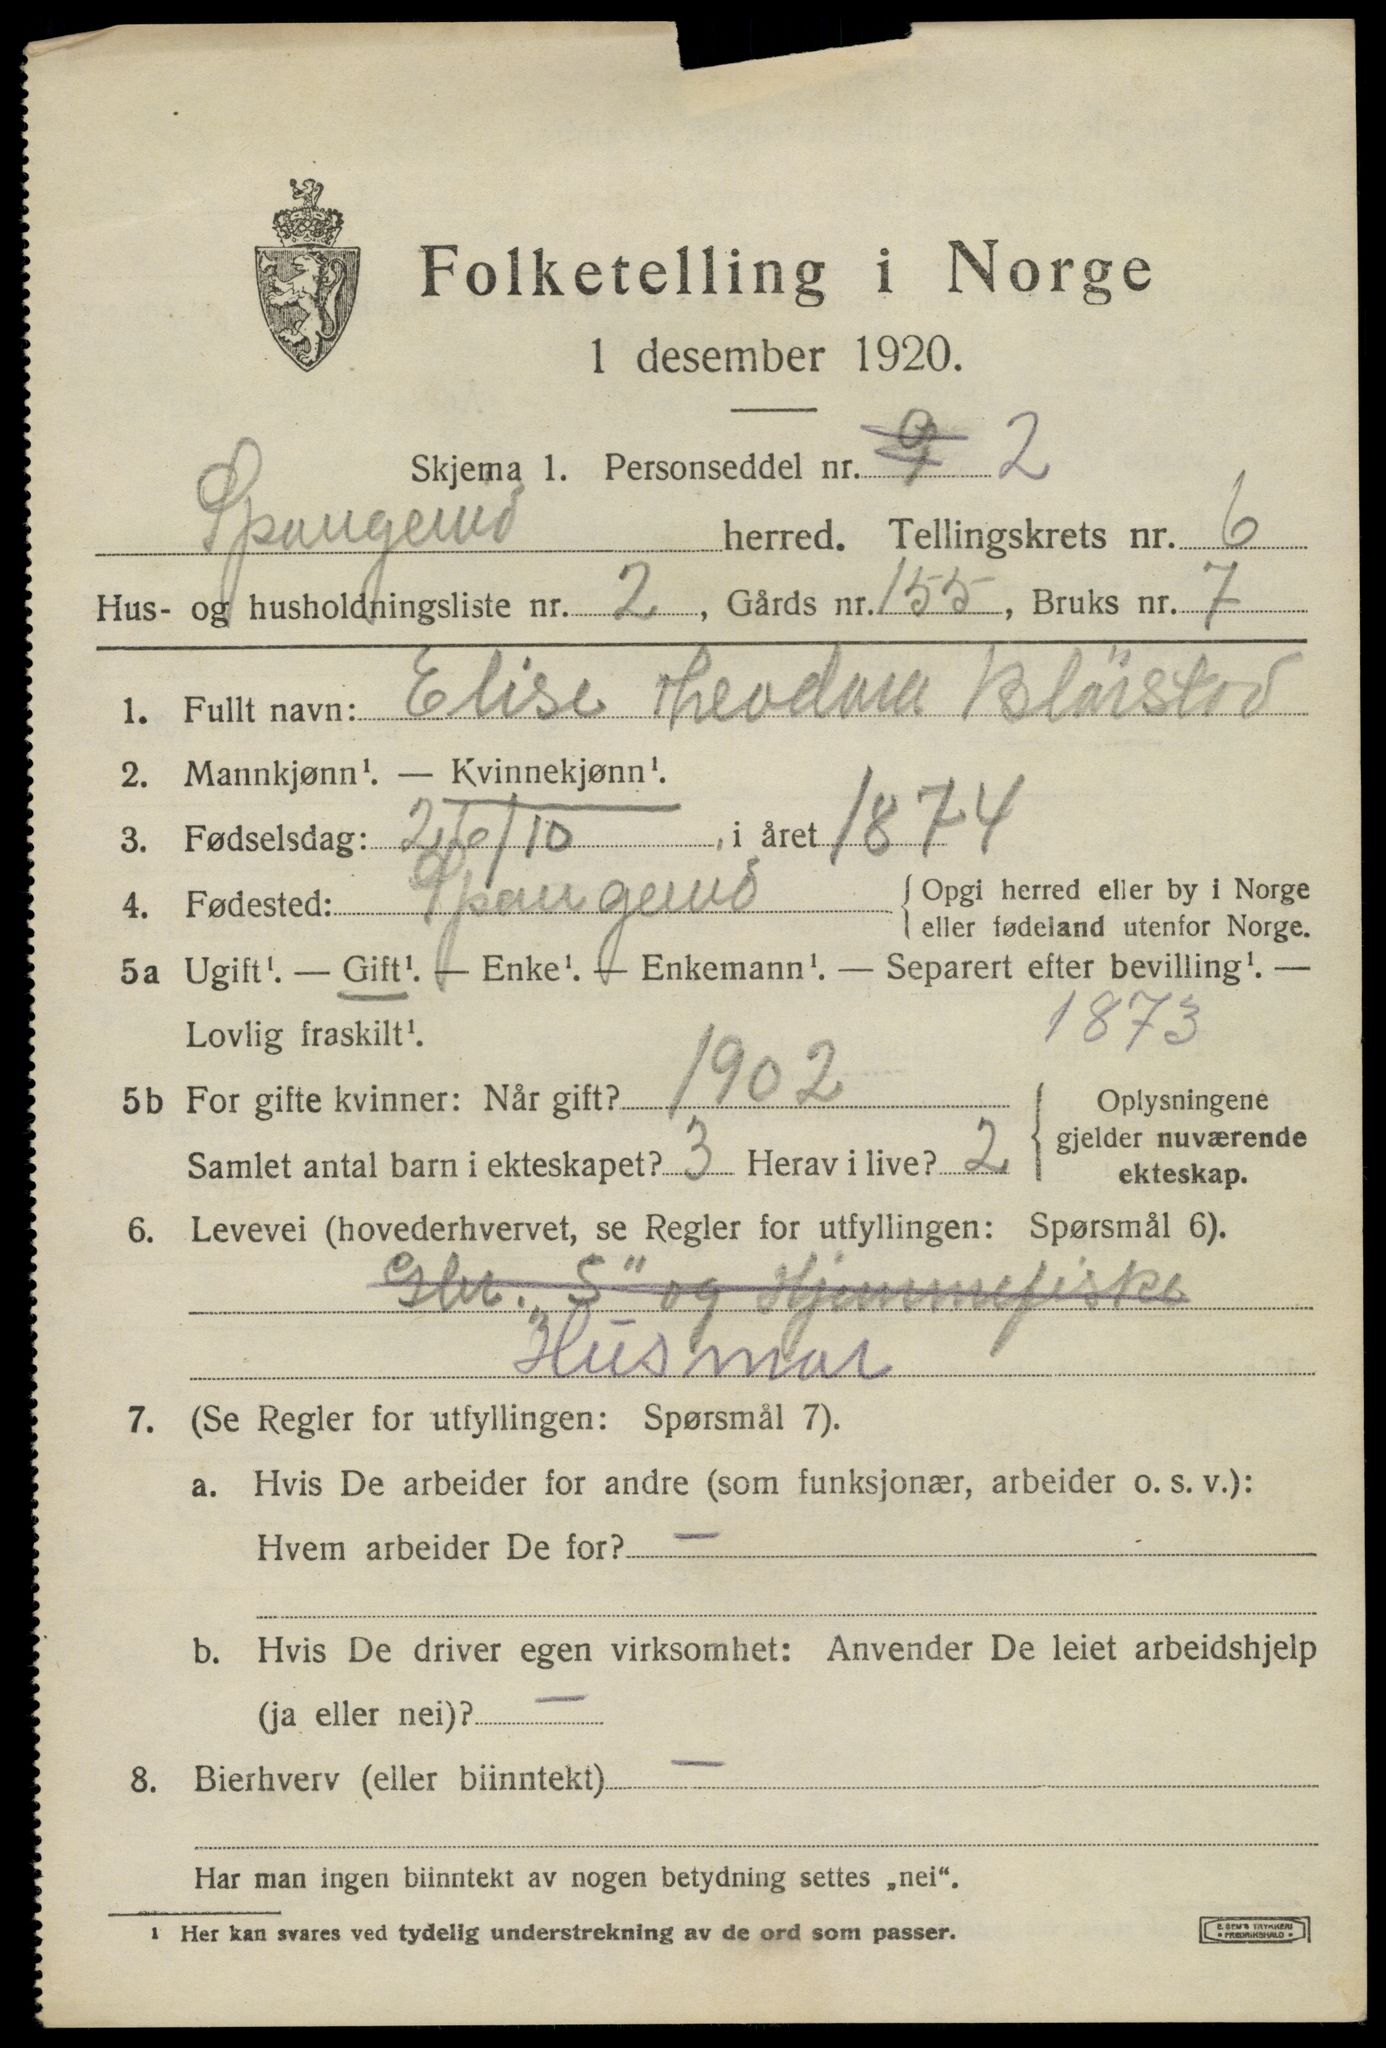 Folketelling i Norge
1 desember 1920.
Skjema 1. Personseddel nr. 9 2
Spangerid herred. Tellingskrets nr. 6
Hus- og husholdningsliste nr. 2, Gårds nr. 155, Bruks nr. 7
1. Fullt navn: Elise Theodora
2. Mannkjønn¹. — Kvinnekjønn¹.
3. Fødselsdag: 26/10, i året 1874
4. Fødested: Spangerid { Opgi herred eller by i Norge
eller fødeland utenfor Norge.
5a Ugift¹. — Gift¹. — Enke¹. — Enkemann¹. — Separert efter bevilling¹. —
Lovlig fraskilt¹. 1873
5b For gifte kvinner: Når gift? 1902
Samlet antal barn i ekteskapet? 3 Herav i live? 2
{ Oplysningene
gjelder nuværende
ekteskap.
6. Levevei (hovederhvervet, se Regler for utfyllingen: Spørsmål 6).
Gbr. "S" og Hjemmefiske
Husmor
7. (Se Regler for utfyllingen: Spørsmål 7).
a. Hvis De arbeider for andre (som funksjonær, arbeider o. s. v.):
Hvem arbeider De for? —
b. Hvis De driver egen virksomhet: Anvender De leiet arbeidshjelp
(ja eller nei)? —
8. Bierhverv (eller biinntekt) —
Har man ingen biinntekt av nogen betydning settes „nei“.
¹ Her kan svares ved tydelig understrekning av de ord som passer.
E. SEM'S TRYKKERI
• FREDRIKSHALD •